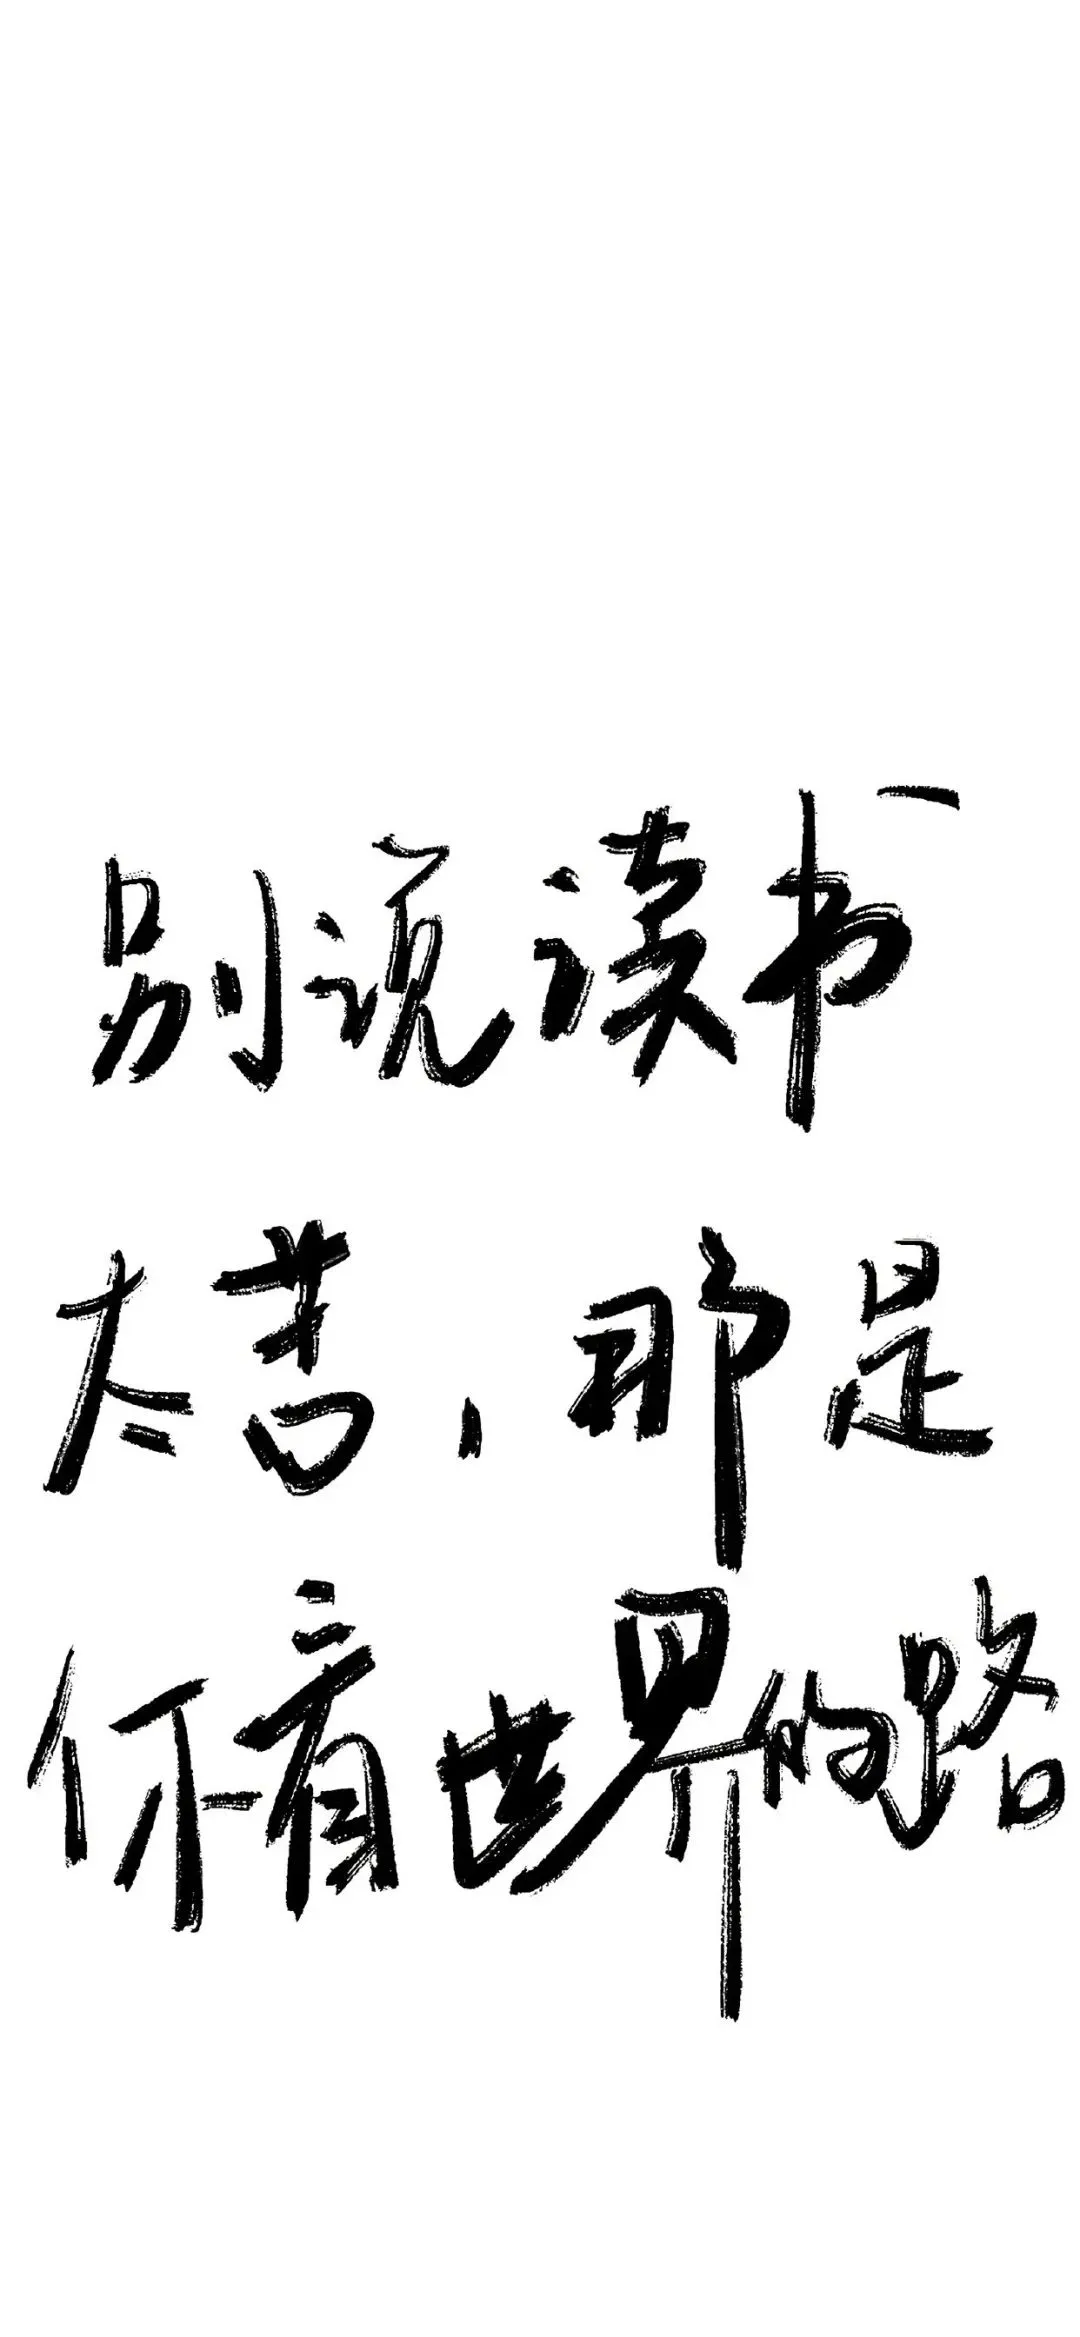 别说读书
太苦，那是
你看世界的路